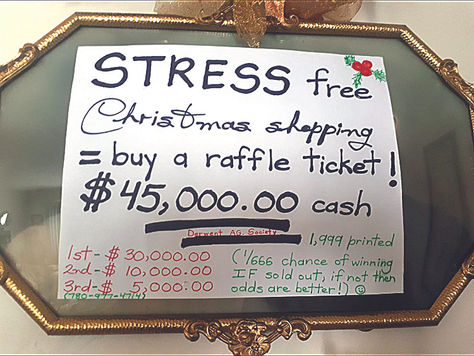 STRESS free
Christmas shopping
= buy a raffle ticket!
$45,000.00 cash
Derwent AG. Society
1,999 printed
1st - $ 30,000.00
2nd - $ 10,000.00
3rd - $ 5,000.00
(780-977-4714)
(1/666 chance of winning
IF sold out, if not then
odds are better!) ☺